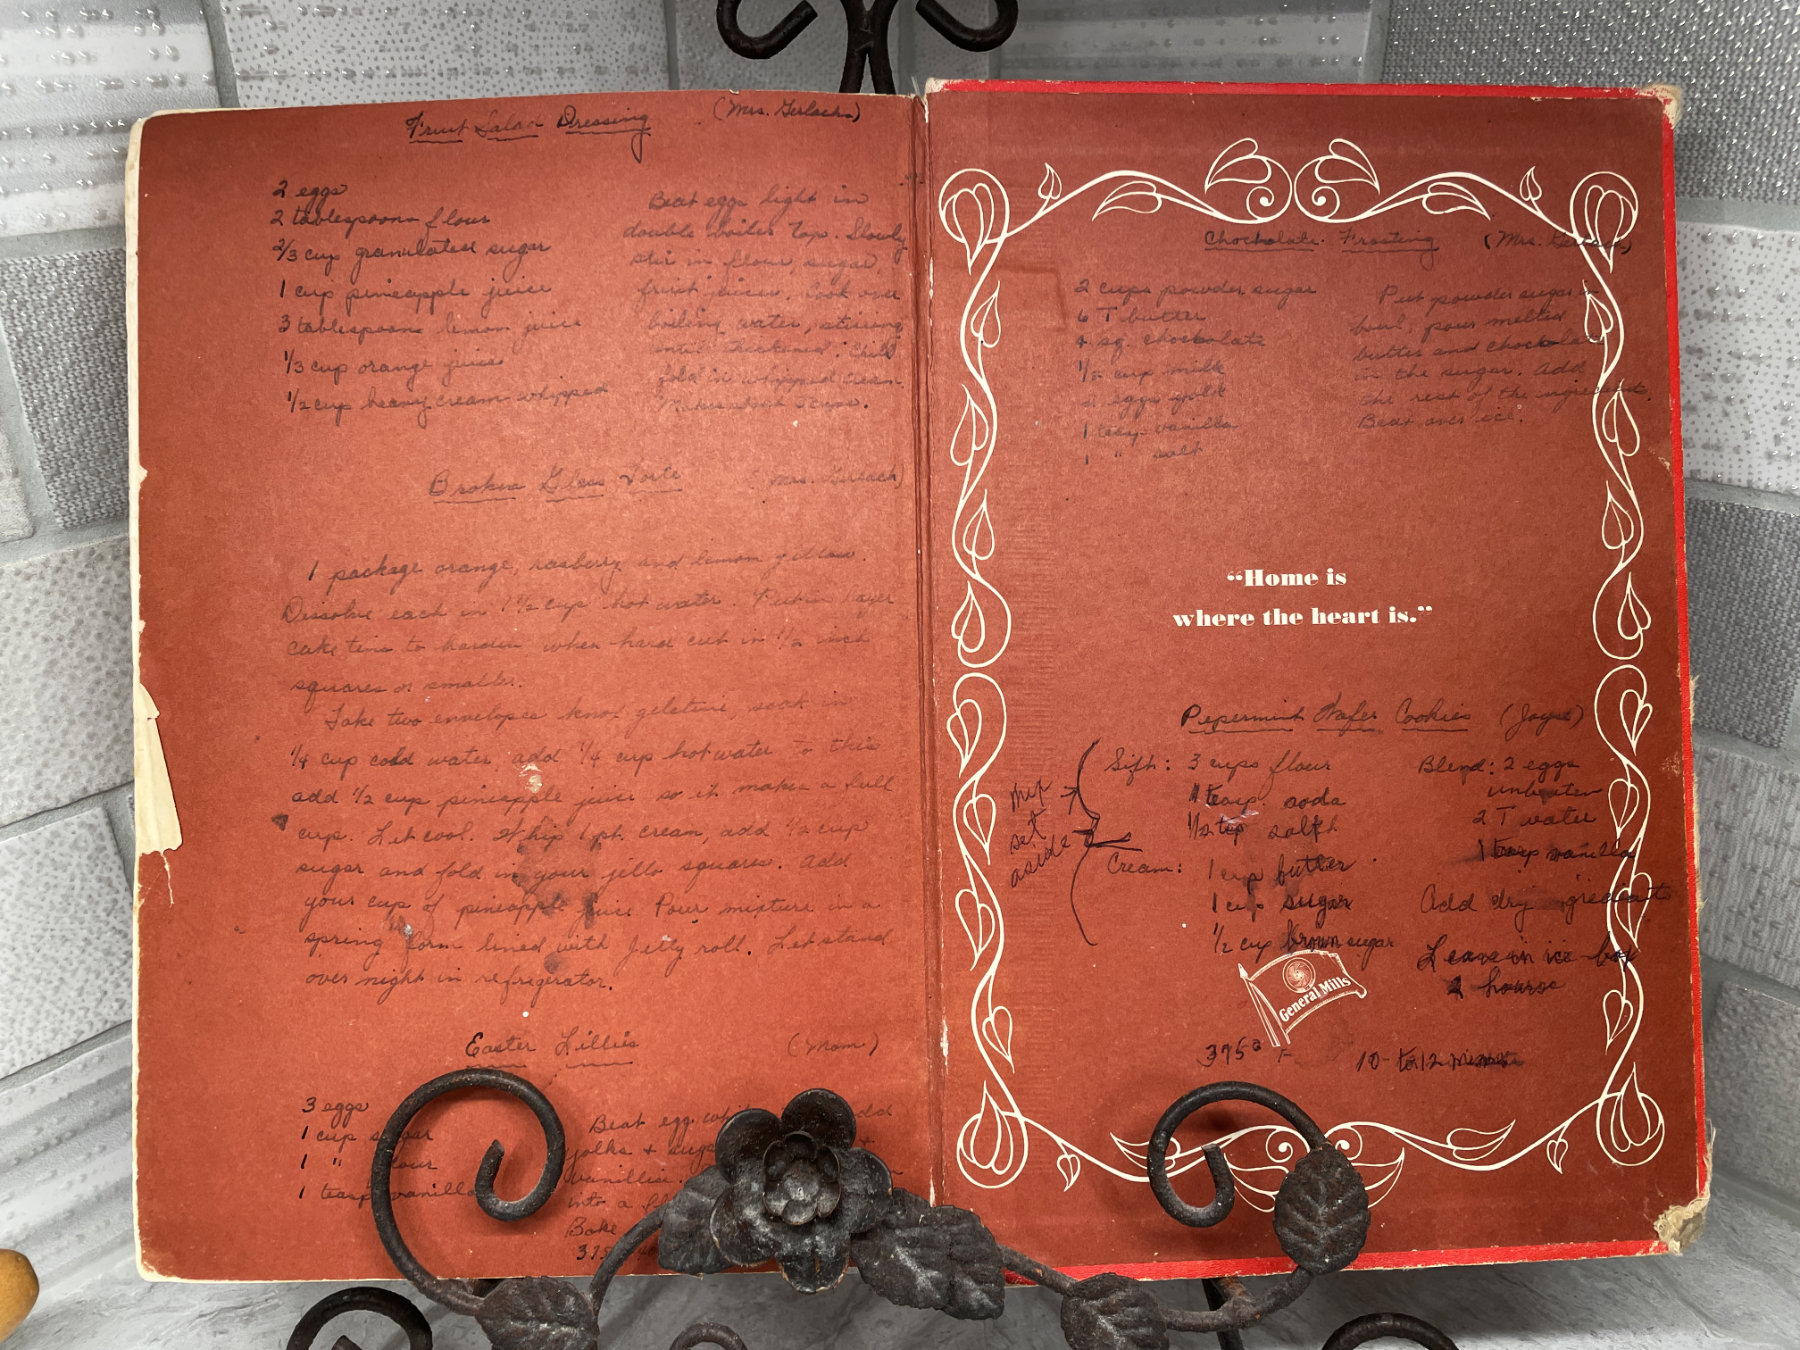 Fruit Salad Dressing (Mrs. Gerlach)
2 eggs
2 tablespoons flour
2/3 cup granulated sugar
1 cup pineapple juice
3 tablespoons lemon juice
1/3 cup orange juice
1/2 cup heavy cream whipped
Beat eggs light in
double boiler top. Slowly
stir in flour, sugar,
fruit juices. Cook over
boiling water, stirring
until thickened. Chill
fold in whipped cream
Makes about 2 cups.
Broken Glass Torte (Mrs. Gerlach)
1 package orange, rasberry and lemon jello.
Dissolve each in 1 1/2 cup hot water. Put in layer
cake tins to harden when hard cut in 1/2 inch
squares or smaller.
Take two envelopes knox geletine soak in
1/4 cup cold water, add 1/4 cup hot water to this
add 1/2 cup pineapple juice so it makes a full
cup. Let cool. Whip 1 pt. cream, add 1/2 cup
sugar and fold in your jello squares. Add
your cup of pineapple juice Pour mixture in a
spring form lined with Jelly roll. Let stand
over night in refrigerator.
Easter Lillies (Mom)
3 eggs
1 cup sugar
1 " flour
1 teasp vanilla
Beat egg add
yolks +
vanilla
into a
Bake
375
Chockolate Frosting (Mrs. Gerlach)
2 cups powder sugar
6 T butter
4 sq. chockolate
1/2 cup milk
egg yolk
1 teasp vanilla
1 " salt
Put powder sugar in
bowl, pour melted
butter and chockolate
in the sugar. Add
the rest of the ingredients.
Beat over ice.
“Home is
where the heart is.”
Pepermint Wafer Cookies (Joyce)
mix
set
aside
Sift: 3 cups flour
1 teasp. soda
1/2 tsp salt
Cream: 1 cup butter
1 cup sugar
1/2 cup brown sugar
Blend: 2 eggs
unbeaten
2 T water
1 teasp vanilla
Add dry
Leave in ice-box
2 hours
General Mills
375° F 10 to 12 mins